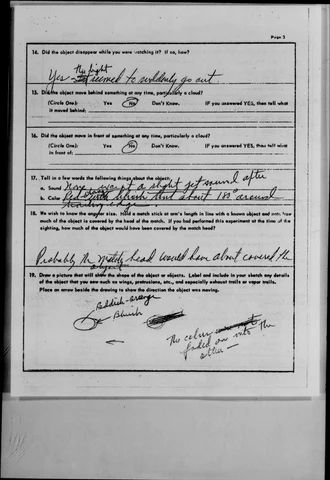 Page 3
14. Did the object disappear while you were watching it? If so, how?
the light
Yes - seemed to suddenly go out
15. Did the object move behind something at any time, particularly a cloud?
(Circle One): Yes No Don't Know. IF you answered YES, then tell what
it moved behind:
16. Did the object move in front of something at any time, particularly a cloud?
(Circle One): Yes No Don't Know. IF you answered YES, then tell what
in front of:
17. Tell in a few words the following things about the object:
a. Sound None except a slight jet sound after
b. Color Red with bluish tint about 180° around
edge
18. We wish to know the angular size. Hold a match stick at arm's length in line with a known object and note how
much of the object is covered by the head of the match. If you had performed this experiment at the time of the
sighting, how much of the object would have been covered by the match head?
Probably the match head would have about covered the
object
19. Draw a picture that will show the shape of the object or objects. Label and include in your sketch any details
of the object that you saw such as wings, protrusions, etc., and especially exhaust trails or vapor trails.
Place an arrow beside the drawing to show the direction the object was moving.
Reddish-orange
Bluish
The colors
faded one into the
other -